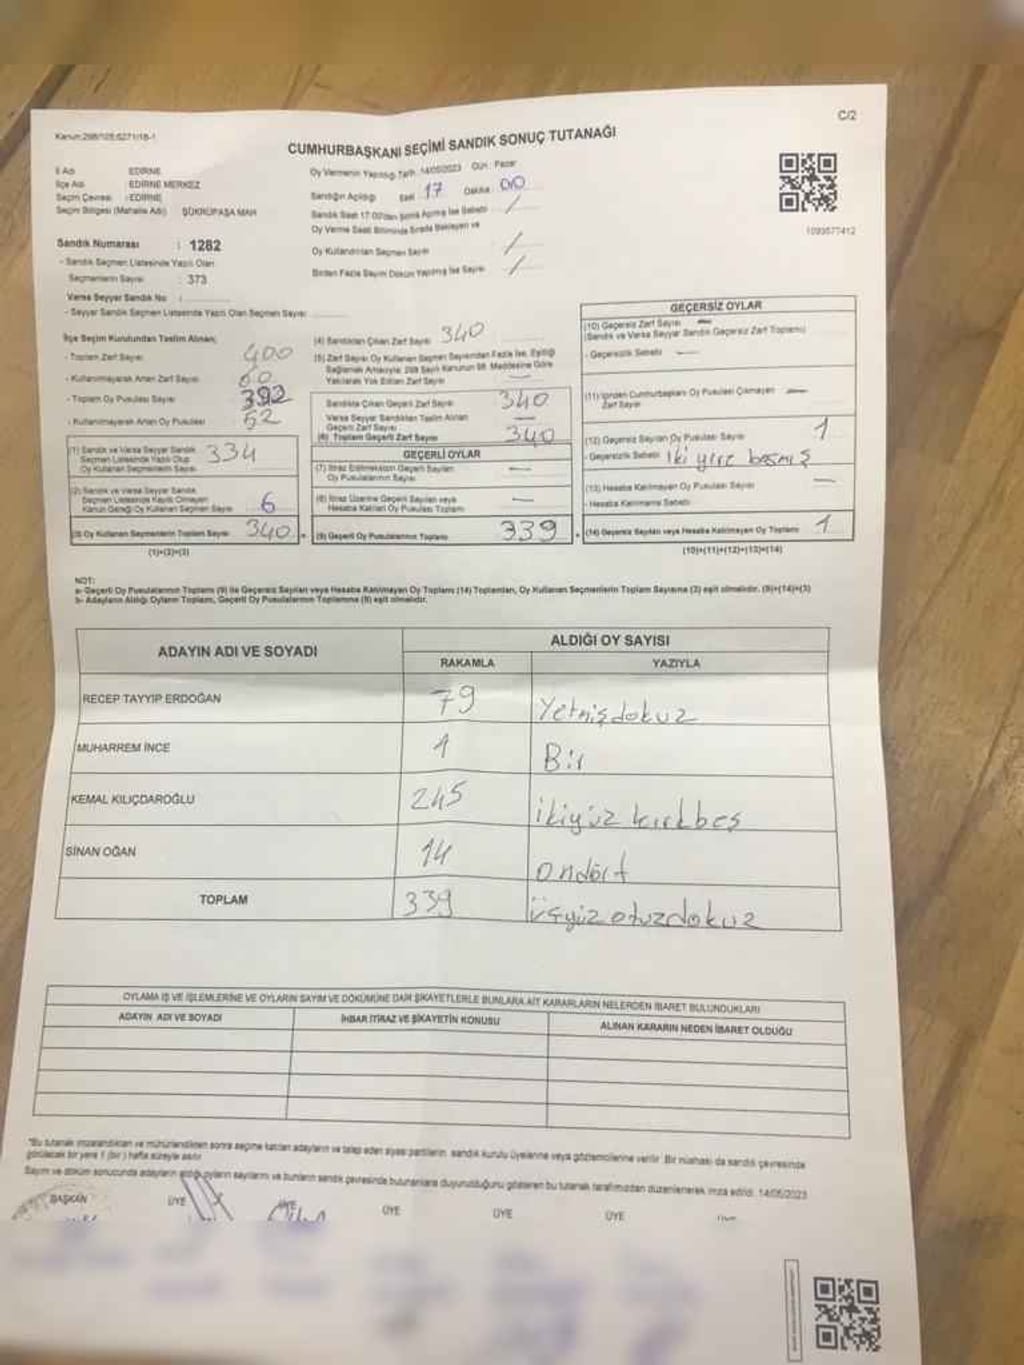 C/2
Kanun:298/105;6271/18-1
CUMHURBAŞKANI SEÇİMİ SANDIK SONUÇ TUTANAĞI
İl Adı EDİRNE
İlçe Adı EDİRNE MERKEZ
Seçim Çevresi : EDİRNE
Seçim Bölgesi (Mahalle Adı) ŞÜKRÜPAŞA MAH
Sandık Numarası : 1282
- Sandık Seçmen Listesinde Yazılı Olan
Seçmenlerin Sayısı : 373
Varsa Seyyar Sandık No :
- Seyyar Sandık Seçmen Listesinde Yazılı Olan Seçmen Sayısı
Oy Vermenin Yapıldığı Tarih 14/05/2023 Gün : Pazar
Sandığın Açıldığı Saat 17 Dakika 00
Sandık Saat 17:00'den Sonra Açılmış İse Sebebi /
Oy Verme Saati Bitiminde Sırada Bekleyen ve
Oy Kullandırılan Seçmen Sayısı /
Birden Fazla Sayım Döküm Yapılmış İse Sayısı /
1093577412
İlçe Seçim Kurulundan Teslim Alınan;
- Toplam Zarf Sayısı 400
- Kullanılmayarak Artan Zarf Sayısı 60
- Toplam Oy Pusulası Sayısı 392
- Kullanılmayarak Artan Oy Pusulası 52
(1) Sandık ve Varsa Seyyar Sandık
Seçmen Listesinde Yazılı Olup
Oy Kullanan Seçmenlerin Sayısı 334
(2) Sandık ve Varsa Seyyar Sandık
Seçmen Listesinde Kayıtlı Olmayan
Kanun Gereği Oy Kullanan Seçmen Sayısı 6
(3) Oy Kullanan Seçmenlerin Toplam Sayısı 340
(1)+(2)=(3)
(4) Sandıktan Çıkan Zarf Sayısı 340
(5) Zarf Sayısı Oy Kullanan Seçmen Sayısından Fazla İse, Eşitliği
Sağlamak Amacıyla; 298 Sayılı Kanunun 98. Maddesine Göre
Yakılarak Yok Edilen Zarf Sayısı —
Sandıkta Çıkan Geçerli Zarf Sayısı 340
Varsa Seyyar Sandıktan Teslim Alınan
Geçerli Zarf Sayısı —
(6) Toplam Geçerli Zarf Sayısı 340
GEÇERLİ OYLAR
(7) İtiraz Edilmeksizin Geçerli Sayılan
Oy Pusulası Sayısı —
(8) İtiraz Üzerine Geçerli Sayılan veya
Hesaba Katılan Oy Pusulası Toplamı —
(9) Geçerli Oy Pusulalarının Toplamı 339
GEÇERSİZ OYLAR
(10) Geçersiz Zarf Sayısı —
(Sandık ve Varsa Seyyar Sandık Geçersiz Zarf Toplamı)
- Geçersizlik Sebebi —
(11) İçinden Cumhurbaşkanı Oy Pusulası Çıkmayan —
Zarf Sayısı
(12) Geçersiz Sayılan Oy Pusulası Sayısı 1
- Geçersizlik Sebebi İki yere basmış
(13) Hesaba Katılmayan Oy Pusulası Sayısı —
- Hesaba Katılmama Sebebi
(14) Geçersiz Sayılan veya Hesaba Katılmayan Oy Toplamı 1
(10)+(11)+(12)+(13)=(14)
NOT:
a- Geçerli Oy Pusulalarının Toplamı (9) ile Geçersiz Sayılan veya Hesaba Katılmayan Oy Toplamı (14) Toplamları, Oy Kullanan Seçmenlerin Toplam Sayısına (3) eşit olmalıdır. (9)+(14)=(3)
b- Adayların Aldığı Oyların Toplamı, Geçerli Oy Pusulalarının Toplamına (9) eşit olmalıdır.
ADAYIN ADI VE SOYADI
ALDIĞI OY SAYISI
RAKAMLA YAZIYLA
RECEP TAYYİP ERDOĞAN 79 Yetmişdokuz
MUHARREM İNCE 1 Bir
KEMAL KILIÇDAROĞLU 245 ikiyüz kırkbeş
SİNAN OĞAN 14 ondört
TOPLAM 339 üçyüz otuzdokuz
OYLAMA İŞ VE İŞLEMLERİNE VE OYLARIN SAYIM VE DÖKÜMÜNE DAİR ŞİKAYETLERLE BUNLARA AİT KARARLARIN NELERDEN İBARET BULUNDUKLARI
ADAYIN ADI VE SOYADI İHBAR İTİRAZ VE ŞİKAYETİN KONUSU ALINAN KARARIN NEDEN İBARET OLDUĞU
*Bu tutanak imzalandıktan ve mühürlendikten sonra seçime katılan adayların ve talep eden siyasi partilerin, sandık kurulu üyelerine veya gözlemcilerine verilir. Bir nüshası da sandık çevresinde
görülecek bir yere 1 (bir) hafta süreyle asılır.
Sayım ve döküm sonucunda adayların aldığı oyların sayılarını ve bunların sandık çevresinde bulunanlara duyurulduğunu gösteren bu tutanak tarafımızdan düzenlenerek imza edildi. 14/05/2023
BAŞKAN ÜYE ÜYE ÜYE ÜYE ÜYE